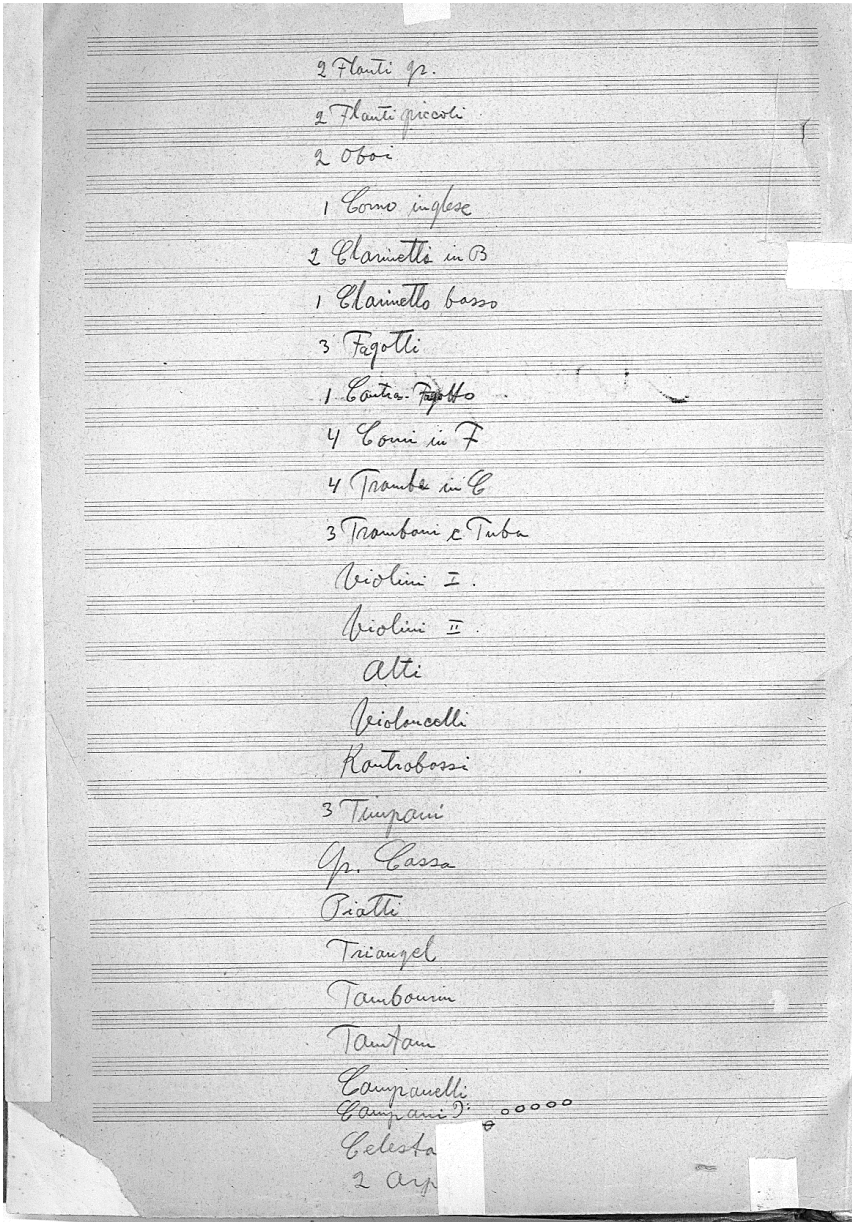 2 Flauti gr.
2 Flauti piccoli
2 Oboi
1 Corno inglese
2 Clarinetti in B
1 Clarinetto basso
3 Fagotti
1 Contra-Fagotto
4 Corni in F
4 Trombe in C
3 Tromboni e Tuba
Violini I.
Violini II.
Alti
Violoncelli
Kontrabassi
3 Timpani
Gr. Cassa
Piatti
Triangel
Tambourin
Tamtam
Campanelli
Campani
Celesta
2 Arp